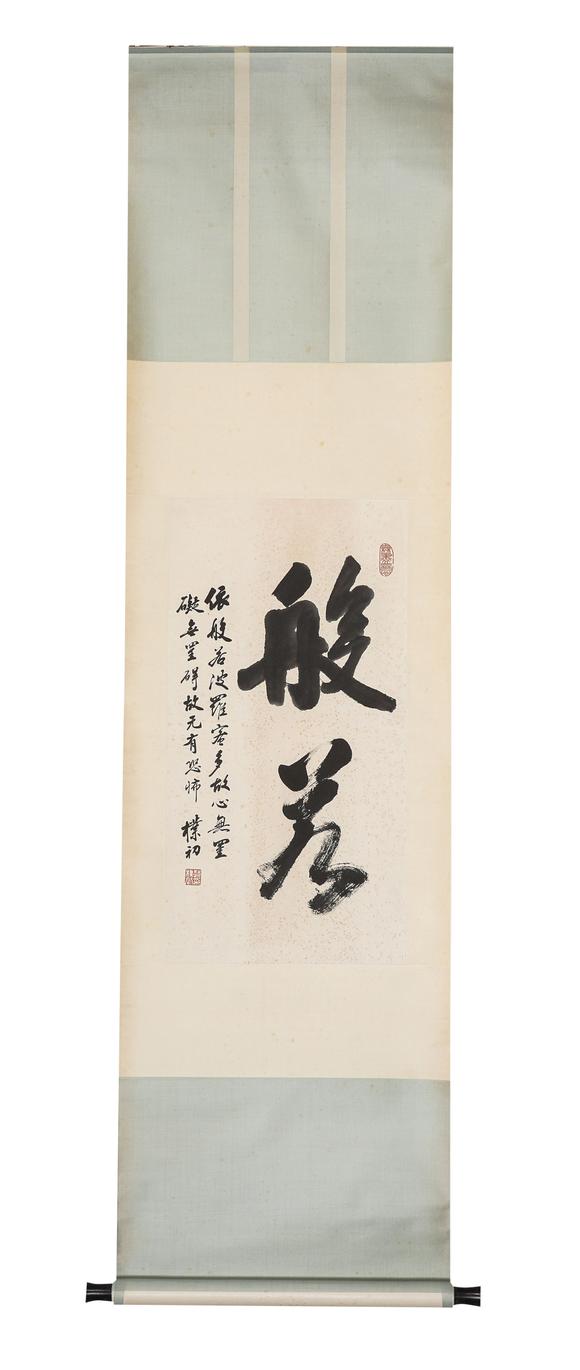 般若
依般若波羅蜜多故心無罣
礙無罣碍故无有恐怖 樸初